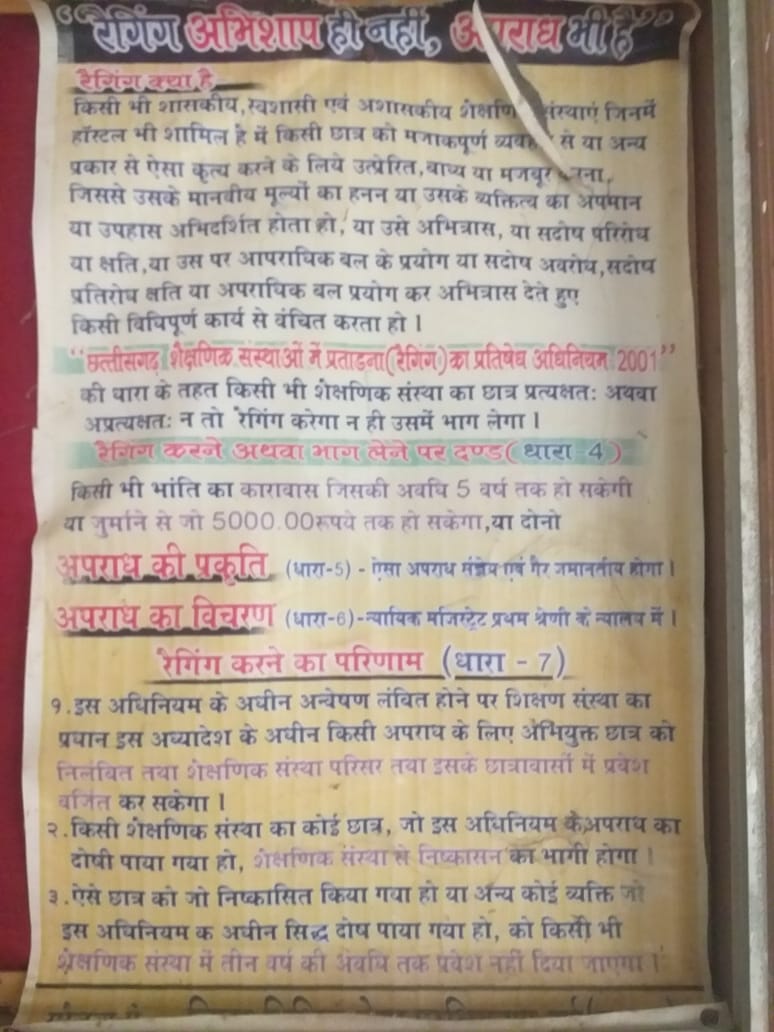 “रैगिंग अभिशाप ही नहीं, अपराध भी है”
रैगिंग क्या है
किसी भी शासकीय,स्वशासी एवं अशासकीय शैक्षणि संस्थाएं जिनमें
हॉस्टल भी शामिल है में किसी छात्र को मजाकपूर्ण व्यवहार से या अन्य
प्रकार से ऐसा कृत्य करने के लिये उत्प्रेरित,बाध्य या मजबूर करना,
जिससे उसके मानवीय मूल्यों का हनन या उसके व्यक्तित्व का अपमान
या उपहास अभिदर्शित होता हो, या उसे अभित्रास, या सदोष परिरोध
या क्षति,या उस पर आपराधिक बल के प्रयोग या सदोष अवरोध,सदोष
प्रतिरोध क्षति या अपराधिक बल प्रयोग कर अभित्रास देते हुए
किसी विधिपूर्ण कार्य से वंचित करता हो ।
“छत्तीसगढ़ शैक्षणिक संस्थाओं में प्रताडना(रैगिंग)का प्रतिषेध अधिनियम 2001”
की धारा के तहत किसी भी शैक्षणिक संस्था का छात्र प्रत्यक्षतः अथवा
अप्रत्यक्षतः न तो रैगिंग करेगा न ही उसमें भाग लेगा ।
रैगिंग करने अथवा भाग लेने पर दण्ड(धारा-4)
किसी भी भांति का कारावास जिसकी अवधि 5 वर्ष तक हो सकेगी
या जुर्माने से जो 5000.00रूपये तक हो सकेगा,या दोनो
अपराध की प्रकृति (धारा-5) - ऐसा अपराध संज्ञेय एवं गैर जमानतीय होगा ।
अपराध का विचरण (धारा-6)-न्यायिक मजिस्ट्रेट प्रथम श्रेणी के न्यालय में ।
रैगिंग करने का परिणाम (धारा - 7)
१.इस अधिनियम के अधीन अन्वेषण लंवित होने पर शिक्षण संस्था का
प्रधान इस अध्यादेश के अधीन किसी अपराध के लिए अभियुक्त छात्र को
निलंबित तथा शैक्षणिक संस्था परिसर तथा इसके छात्रावासों में प्रवेश
वर्जित कर सकेगा ।
२.किसी शैक्षणिक संस्था का कोई छात्र, जो इस अधिनियम के अपराध का
दोषी पाया गया हो, शैक्षणिक संस्था से निष्कासन का भागी होगा ।
३.ऐसे छात्र को जो निष्कासित किया गया हो या अन्य कोई व्यक्ति जो
इस अधिनियम क अधीन सिद्ध दोष पाया गया हो, को किसी भी
शैक्षणिक संस्था में तीन वर्ष की अवधि तक प्रवेश नहीं दिया जाएगा ।